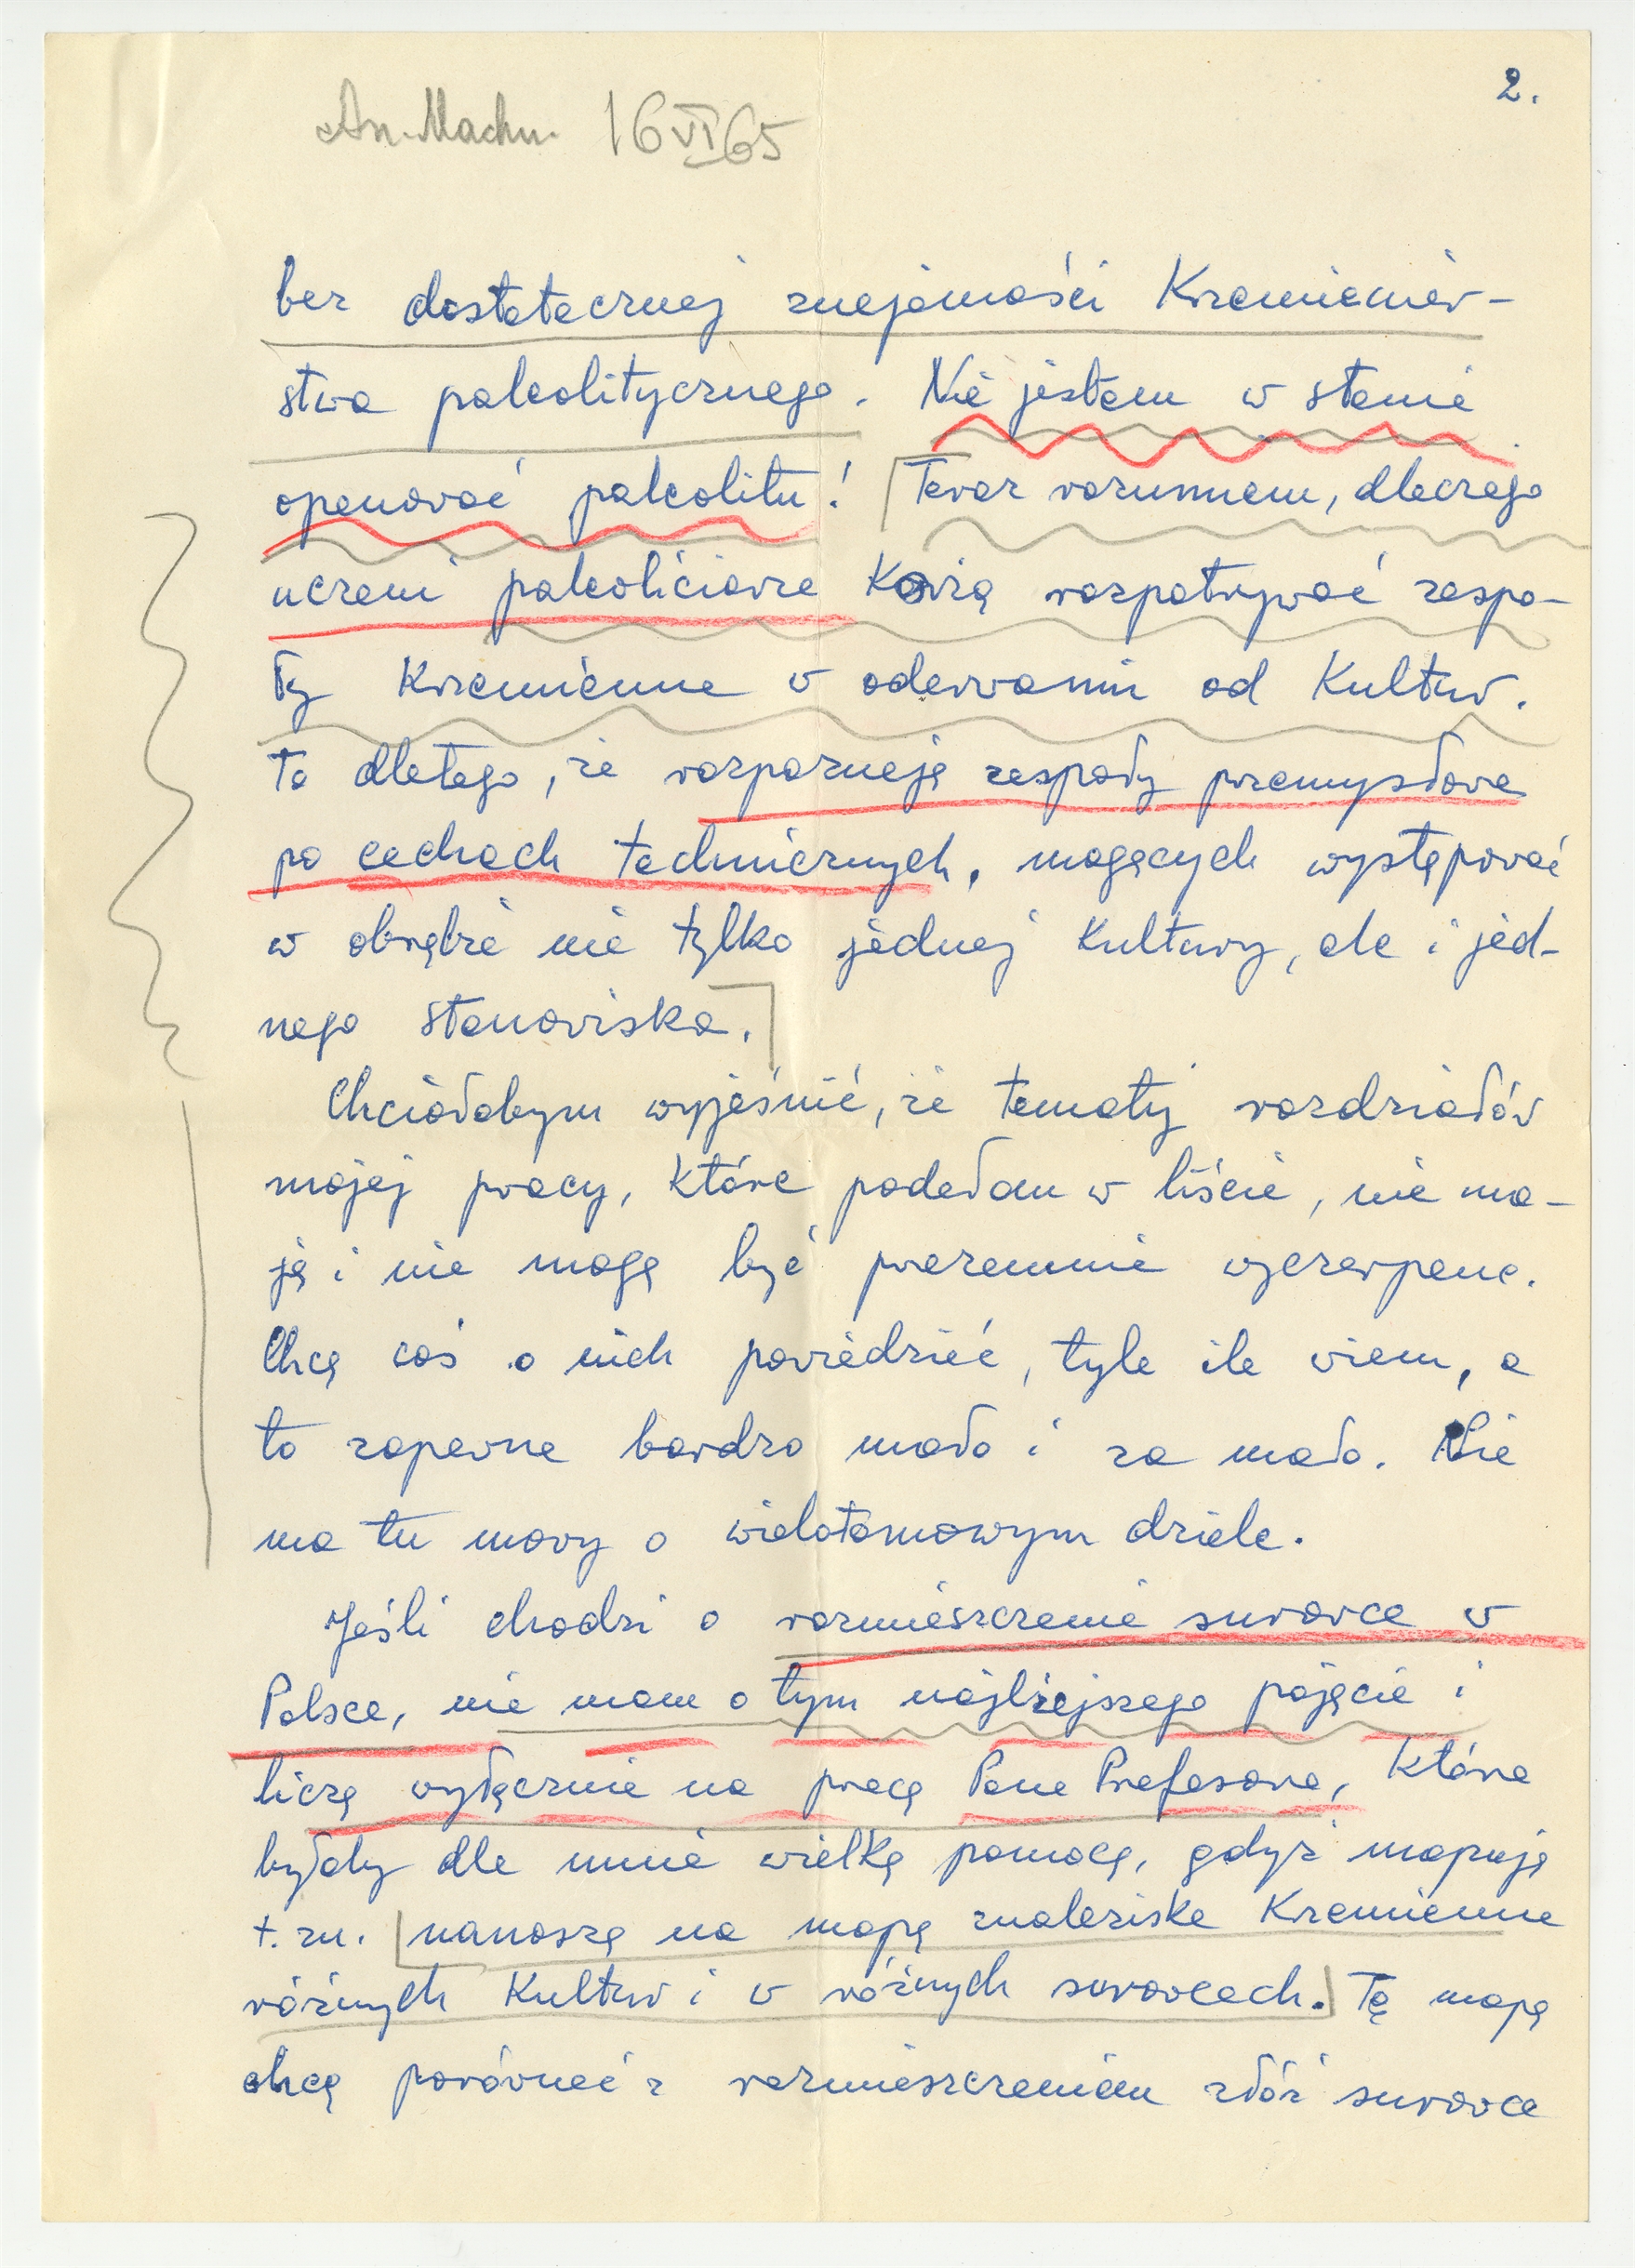 2.
An. Machn. 16 VI 65
bez dostatecznej znajomości Krzemieniar-
stwa paleolitycznego. Nie jestem w stanie
opanować paleolitu! Teraz rozumiem, dlaczego
uczeni paleoliciarze Każą rozpatrywać zespo-
ły Krzemienne w oderwaniu od Kultur.
To dlatego, że rozpoznają zespoły przemysłowe
po cechach technicznych, mogących występować
w obrębie nie tylko jednej Kultury, ale i jed-
nego stanowiska.
Chciałabym wyjaśnić, że tematy rozdziałów
mojej pracy, które podałam w liście, nie ma-
ją i nie mogą być przezemnie wyczerpane.
Chcę coś o nich powiedzieć, tyle ile wiem, a
to zapewne bardzo mało i za mało. Nie
ma tu mowy o wielotomowym dziele.
Jeśli chodzi o rozmieszczenie surowca w
Polsce, nie mam o tym najlżejszego pojęcia i
liczę wyłącznie na pracę Pana Profesora, Która
byłaby dla mnie wielką pomocą, gdyż mapuję
t. zn. nanoszę na mapę znaleziska Krzemienne
różnych Kultur i w różnych surowcach. Tę mapę
chcę porównać z rozmieszczeniem złóż surowca